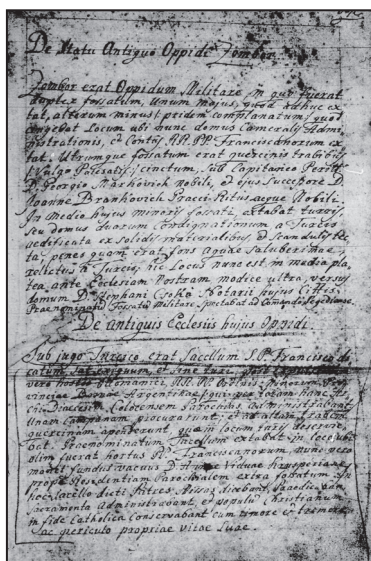 De Statu Antiquo Oppidi Zombor
Zombor erat Oppidum Militare in quo fuerat
duplex fossatum, unum majus, quod adhuc ex
tat, alterum minus pridem complanatum, quod
Locum ubi nunc domus Cameralis Admi
nistrationis, et RR. PP. Franciscanorum ex
tat. Utrumque fossatum erat quercinis trabibus
Vulgo cinctum, sub Capitaneo
D. Georgio Márkovich nobili, et ejus Successore D.
Joanne Brankovich Graeci Ritus aeque Nobili.
In Medio hujus minoris fossati, extabat turris,
seu domus duarum Contignationum a Turcis
aedificata ex solidis materialibus et
penes quam erat fons aquae saluberimae
relictus a Turcis; hic Locus nunc est in media pla
tea ante Ecclesiam Nostram modice ultra, versus
domum D. Stephani Csoko Notarii hujus
Praenominatum Fossatum Militare spectabat ad Comando Segediense.
De antiquis Ecclesiis hujus Oppidi
Sub jugo Turcico erat Sacellum S. P. Francisco di
catum sat exiguum, et sine turri.
vero hostes Ottomanici, RR. PP.
vinciae Bosnae Argentinae, qui per totam hanc
Dioecesim Colocensem Parochias administrabant
Unam Campanam et in altam
quercinam apposuerunt, quam locum turri deservie
bat. Praenominatum Sacellum extabat in loco ubi
olim fuerat hortus PP. Franciscanorum, nunc vero
modo fundus vacuus D. Annae Viduae
prope Residentiam Parochialem extra fossatum. In
hoc Sacello dicti Patres Missas dicebant, Praedicabant
Sacramenta administrabant, et populum Christianum
in fide Catholica Conservabant cum timore et tremore
ac periculo propriae vitae suae.